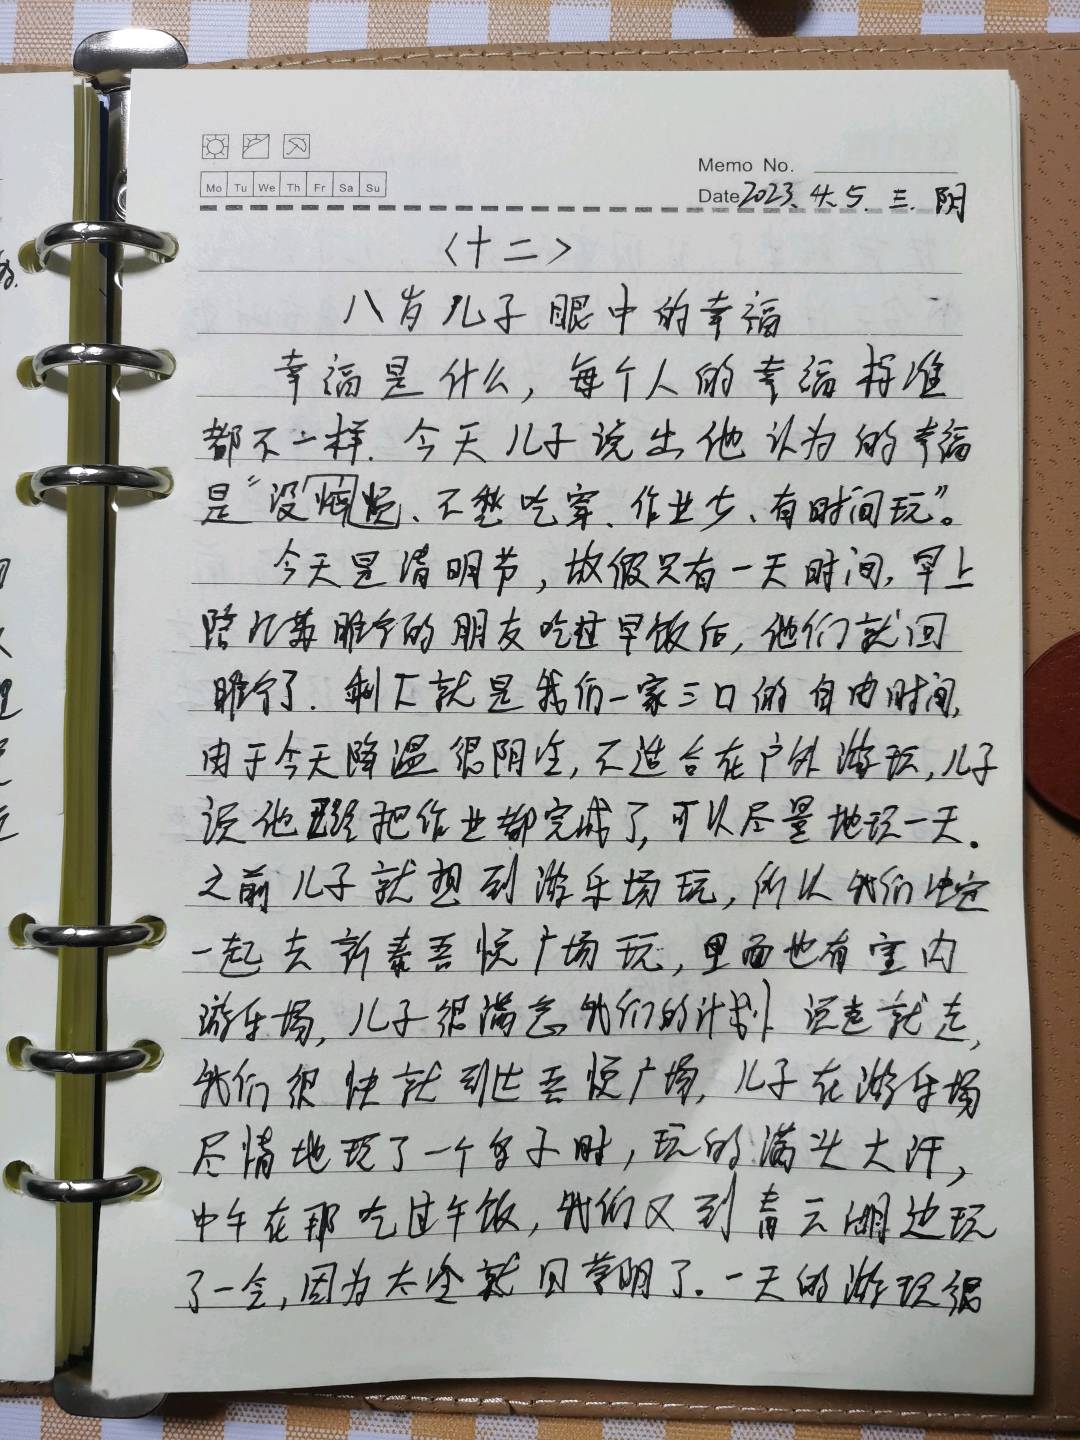 Memo No.
Mo Tu We Th Fr Sa Su
Date 2023.4.5.三.阴
〈十二〉
八岁儿子眼中的幸福
幸福是什么，每个人的幸福标准
都不一样.今天儿子说出他认为的幸福
是“没烦恼、不愁吃穿、作业少、有时间玩”。
今天是清明节，放假只有一天时间,早上
陪江苏睢宁的朋友吃过早饭后，他们就回
睢宁了.剩下就是我们一家三口的自由时间,
由于今天降温很阴冷，不适合在户外游玩,儿子
说他已经把作业都完成了,可以尽量地玩一天.
之前儿子就想到游乐场玩，所以我们决定
一起去新泰吾悦广场玩，里面也有室内
游乐场,儿子很满意我们的计划 说走就走,
我们很快就到达吾悦广场,儿子在游乐场
尽情地玩了一个多小时，玩的满头大汗,
中午在那吃过午饭,我们又到青云湖边玩
了一会,因为太冷就回 了.一天的游玩很